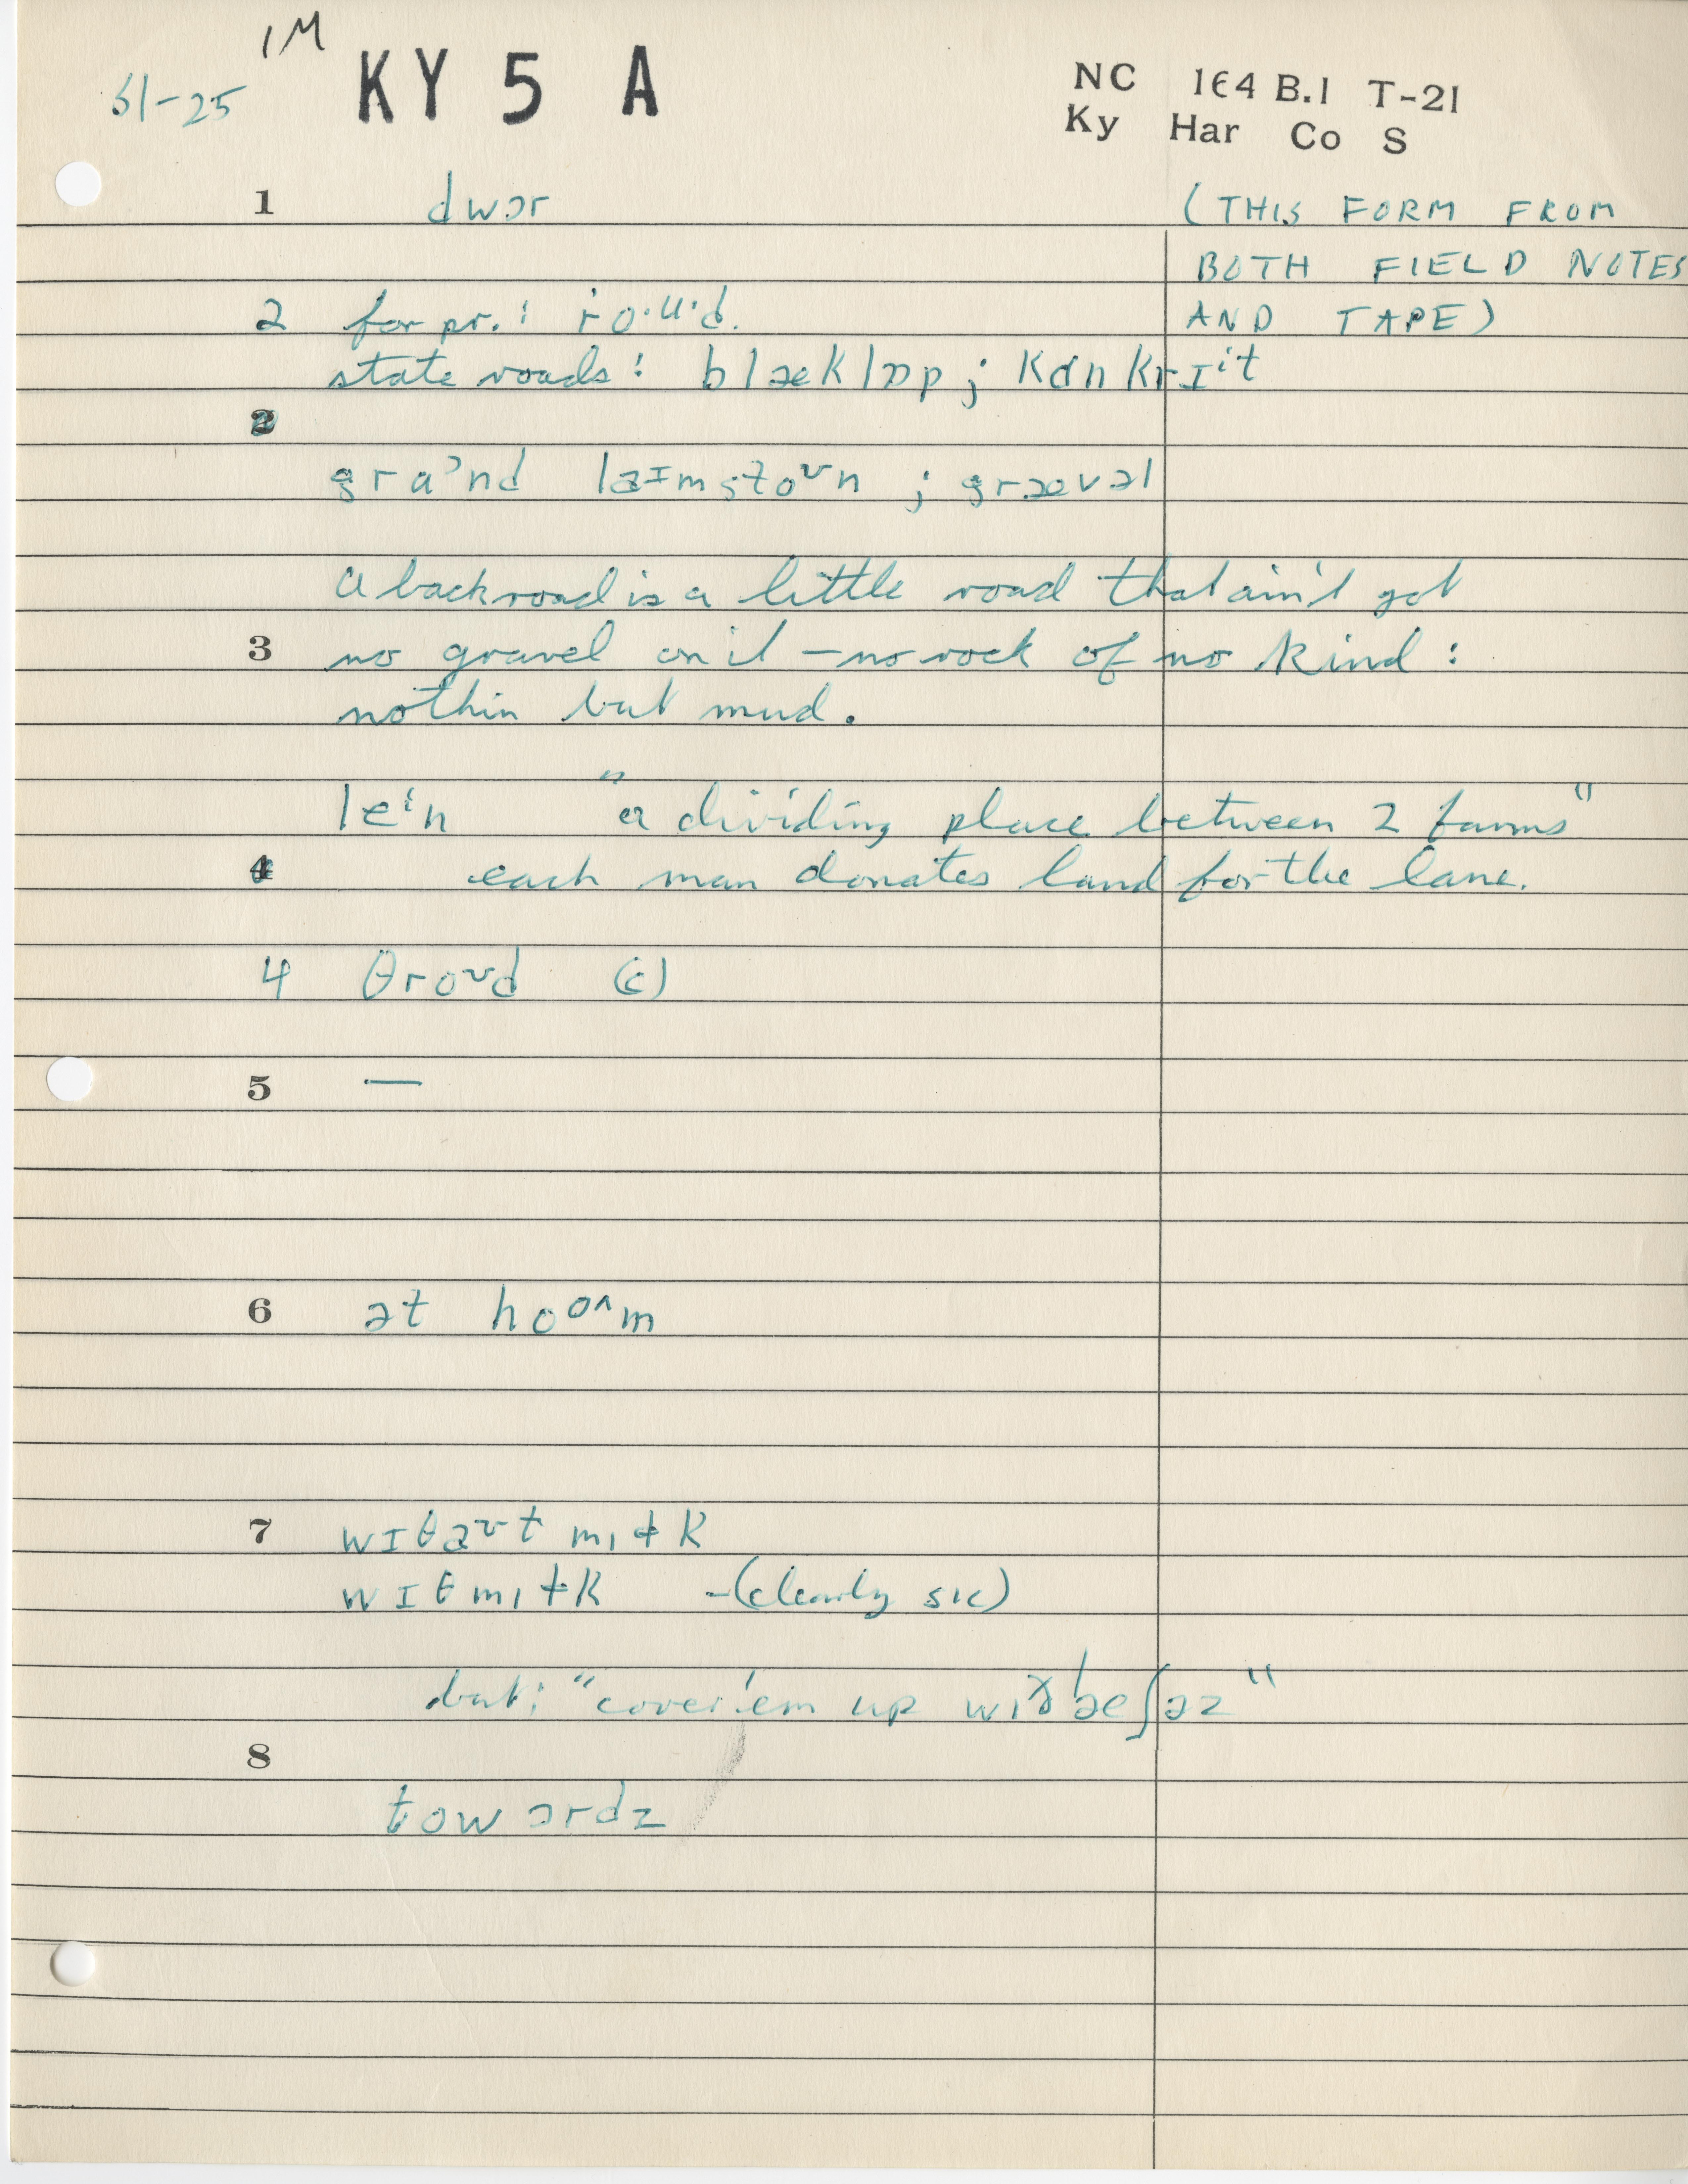 1M
KY 5 A
51-25
NC 1E4 B.1 T-21
Ky Har Co S
1 dwɔr (THIS FORM FROM
BOTH FIELD NOTES
2 for pr.: AND TAPE)
state roads: blæktɒp; kɑnkrɪit
2
graᵓnd ; grævəl
A backroad is a little road that ain't got
3 no gravel on it – no rock of no kind:
nothin but mud.
"a dividing place between 2 farms"
4 each man donates land for the lane.
4 θroᶷd (c)
5 —
6 ət hoᵒ^m
7 wɪθaᶷt mɪɫk
wɪθ mɪɫk –(clearly sic)
but: "cover 'em up wɪð æʃəz"
8
towɔrdz